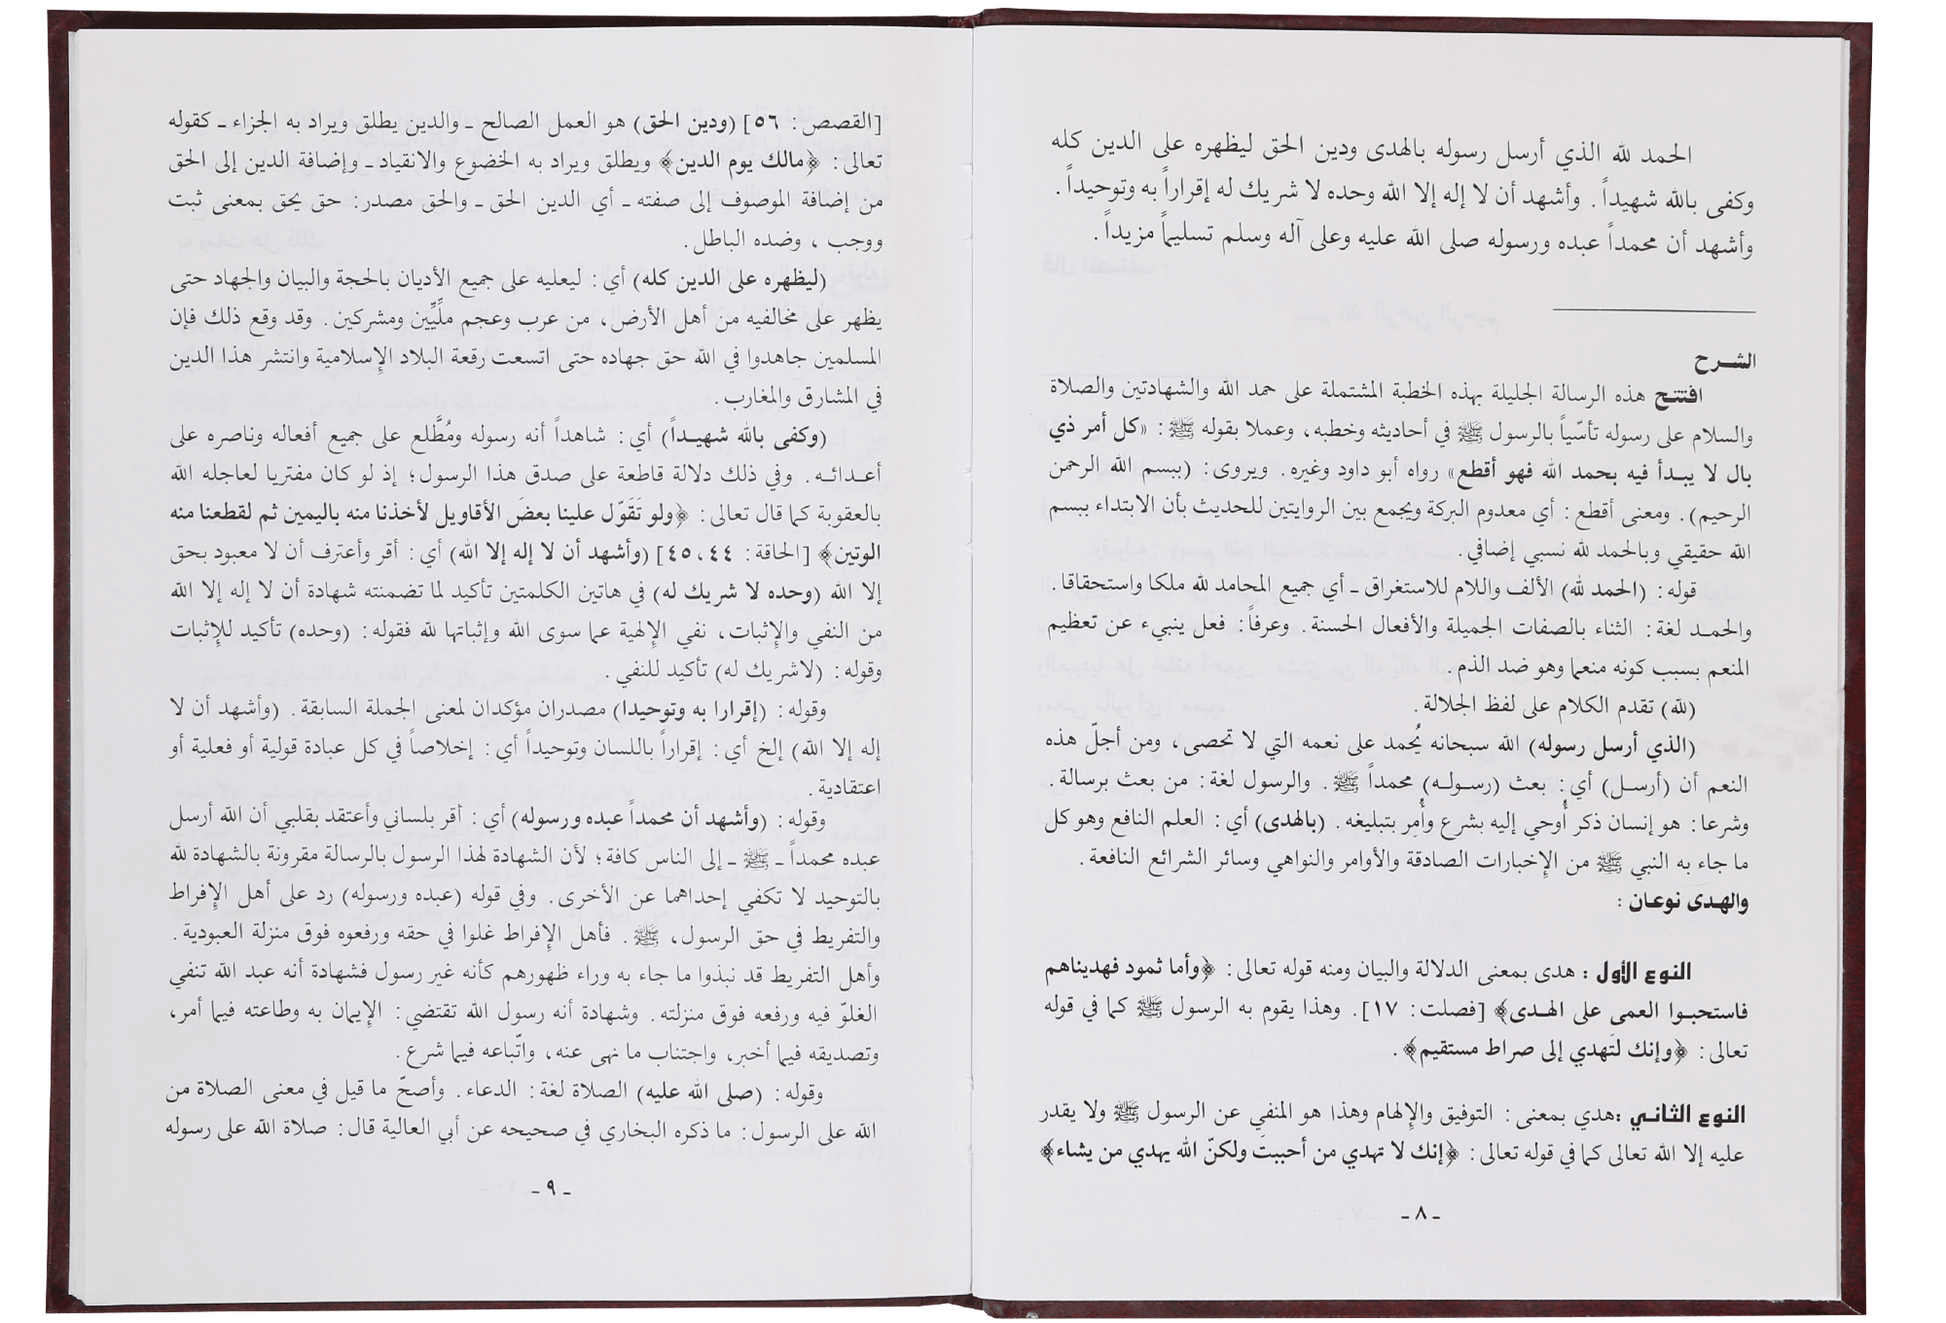 الحمد لله الذي أرسل رسوله بالهدى ودين الحق ليظهره على الدين كله
وكفى بالله شهيداً . وأشهد أن لا إله إلا الله وحده لا شريك له إقراراً به وتوحيداً .
وأشهد أن محمداً عبده ورسوله صلى الله عليه وعلى آله وسلم تسليماً مزيداً .
الشرح
افتتح هذه الرسالة الجليلة بهذه الخطبة المشتملة على حمد الله والشهادتين والصلاة
والسلام على رسوله تأسّياً بالرسول ﷺ في أحاديثه وخطبه، وعملا بقوله ﷺ : «كل أمر ذي
بال لا يبدأ فيه بحمد الله فهو أقطع» رواه أبو داود وغيره. ويروى: (ببسم الله الرحمن
الرحيم). ومعنى أقطع: أي معدوم البركة ويجمع بين الروايتين للحديث بأن الابتداء ببسم
الله حقيقي وبالحمد لله نسبي إضافي.
قوله: (الحمد لله) الألف واللام للاستغراق ـ أي جميع المحامد لله ملكا واستحقاقا.
والحمد لغة: الثناء بالصفات الجميلة والأفعال الحسنة. وعرفاً: فعل ينبيء عن تعظيم
المنعم بسبب كونه منعما وهو ضد الذم.
(لله) تقدم الكلام على لفظ الجلالة.
(الذي أرسل رسوله) الله سبحانه يُحمد على نعمه التي لا تحصى، ومن أجلّ هذه
النعم أن (أرسل) أي: بعث (رسوله) محمداً ﷺ. والرسول لغة: من بعث برسالة.
وشرعا: هو إنسان ذكر أُوحي إليه بشرع وأُمِر بتبليغه. (بالهدى) أي: العلم النافع وهو كل
ما جاء به النبي ﷺ من الإخبارات الصادقة والأوامر والنواهي وسائر الشرائع النافعة.
والهدى نوعان :
النوع الأول : هدى بمعنى الدلالة والبيان ومنه قوله تعالى: ﴿وأما ثمود فهديناهم
فاستحبوا العمى على الهدى﴾ [فصلت: ١٧]. وهذا يقوم به الرسول ﷺ كما في قوله
تعالى: ﴿وإنك لتَهدي إلى صراط مستقيم﴾.
النوع الثاني :هدي بمعنى: التوفيق والإلهام وهذا هو المنفي عن الرسول ﷺ ولا يقدر
عليه إلا الله تعالى كما في قوله تعالى: ﴿إنك لا تهدي من أحببتَ ولكنّ الله يهدي من يشاء﴾
- ٨ -
[القصص: ٥٦] (ودين الحق) هو العمل الصالح ـ والدين يطلق ويراد به الجزاء ـ كقوله
تعالى: ﴿مالك يوم الدين﴾ ويطلق ويراد به الخضوع والانقياد ـ وإضافة الدين إلى الحق
من إضافة الموصوف إلى صفته ـ أي الدين الحق ـ والحق مصدر: حق يحق بمعنى ثبت
ووجب ، وضده الباطل.
(ليظهره على الدين كله) أي: ليعليه على جميع الأديان بالحجة والبيان والجهاد حتى
يظهر على مخالفيه من أهل الأرض، من عرب وعجم ملِّيِّين ومشركين. وقد وقع ذلك فإن
المسلمين جاهدوا في الله حق جهاده حتى اتسعت رقعة البلاد الإسلامية وانتشر هذا الدين
في المشارق والمغارب.
(وكفى بالله شهيداً) أي: شاهداً أنه رسوله ومُطَّلع على جميع أفعاله وناصره على
أعدائه. وفي ذلك دلالة قاطعة على صدق هذا الرسول؛ إذ لو كان مفتريا لعاجله الله
بالعقوبة كما قال تعالى: ﴿ولو تَقَوّل علينا بعضَ الأقاويل لأخذنا منه باليمين ثم لقطعنا منه
الوتين﴾ [الحاقة: ٤٤، ٤٥] (وأشهد أن لا إله إلا الله) أي: أقر وأعترف أن لا معبود بحق
إلا الله (وحده لا شريك له) في هاتين الكلمتين تأكيد لما تضمنته شهادة أن لا إله إلا الله
من النفي والإثبات، نفي الإلهية عما سوى الله وإثباتها لله فقوله: (وحده) تأكيد للإثبات
وقوله: (لاشريك له) تأكيد للنفي.
وقوله: (إقرارا به وتوحيدا) مصدران مؤكدان لمعنى الجملة السابقة. (وأشهد أن لا
إله إلا الله) إلخ أي: إقراراً باللسان وتوحيداً أي: إخلاصاً في كل عبادة قولية أو فعلية أو
اعتقادية.
وقوله: (وأشهد أن محمداً عبده ورسوله) أي: أقر بلساني وأعتقد بقلبي أن الله أرسل
عبده محمداً ـ ﷺ ـ إلى الناس كافة؛ لأن الشهادة لهذا الرسول بالرسالة مقرونة بالشهادة لله
بالتوحيد لا تكفي إحداهما عن الأخرى. وفي قوله (عبده ورسوله) رد على أهل الإفراط
والتفريط في حق الرسول، ﷺ. فأهل الإفراط غلوا في حقه ورفعوه فوق منزلة العبودية.
وأهل التفريط قد نبذوا ما جاء به وراء ظهورهم كأنه غير رسول فشهادة أنه عبد الله تنفي
الغلوّ فيه ورفعه فوق منزلته. وشهادة أنه رسول الله تقتضي: الإيمان به وطاعته فيما أمر،
وتصديقه فيما أخبر، واجتناب ما نهى عنه، واتّباعه فيما شرع.
وقوله: (صلى الله عليه) الصلاة لغة: الدعاء. وأصحّ ما قيل في معنى الصلاة من
الله على الرسول: ما ذكره البخاري في صحيحه عن أبي العالية قال: صلاة الله على رسوله
- ٩ -